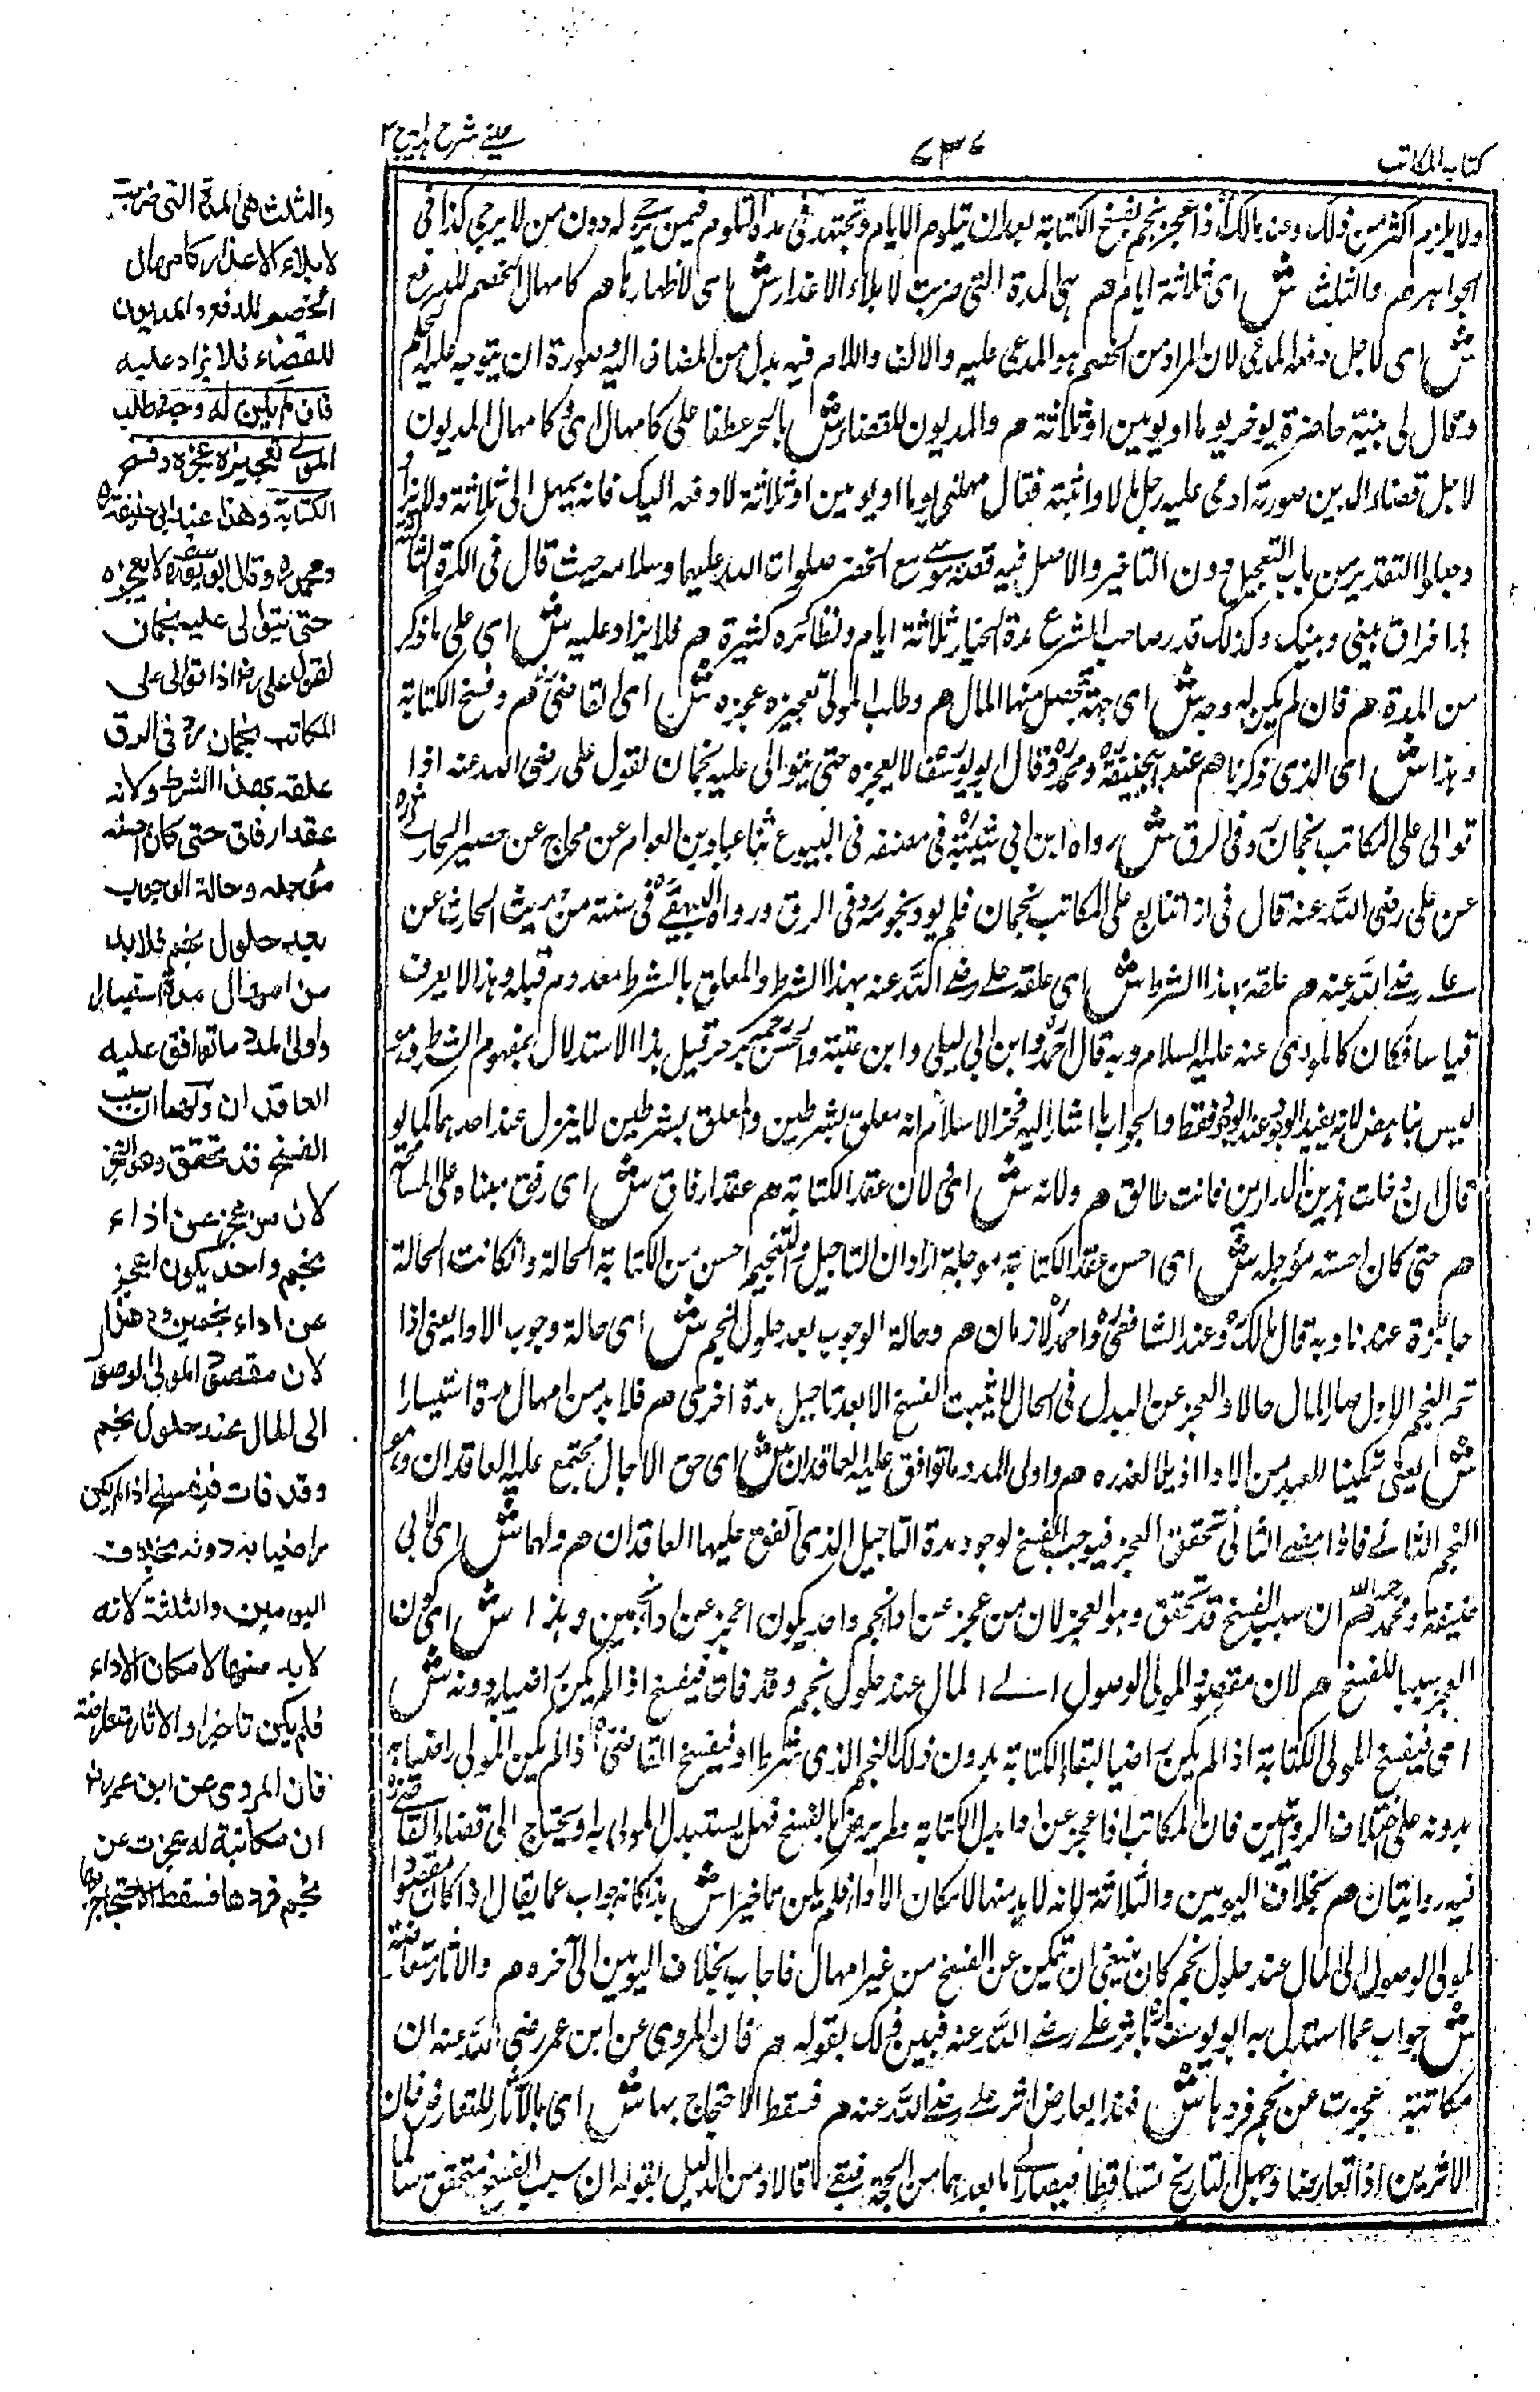 كتاب المكاتب
٧٣٦
عينى شرح هداية ج٣
ولا يلزم اكثر من ذلك وعند مالك اذا عجز بنجم يفسخ الكتابة بعد ان يتلوم الايام ويجتهد فى مدة التلوم فيمن يرجى له دون من لا يرجى كذا فى
الجواهر هم والثلث ش اى ثلاثة ايام هم هى المدة التى ضربت لابلاء الاعذار ش اى لاظهارها هم كامهال الخصم للدفع
ش اى لاجل دفعه المدعى لان المراد من الخصم هو المدعى عليه والالف واللام فيه بدل من المضاف اليه صورة ان يتوجه عليه الحكم
وقال لى بينة حاضرة يوخر يوما او يومين او ثلاثة هم والمديون للقضاء ش بالجر عطفا على كامهال اى كامهال المديون
لاجل قضاء الدين صورته ادعى عليه رجل مالا واثبته فقال مهلنى يوما او يومين او ثلاثة لادفعه اليك فانه يمهل الى ثلاثة ولا يزاد
وجعلوا التقدير من باب التعجيل دون التاخير والاصل فيه قصة موسى مع الخضر صلوات الله عليهما وسلامه حيث قال فى الكرة الثالثة
هذا فراق بينى وبينك وكذلك قدر صاحب الشرع مدة الخيار ثلاثة ايام ونظائره كثيرة هم فلا يزاد عليه ش اى على ما ذكر
من المدة هم فان لم يكن له وجه ش اى جهة يحصل منها المال هم وطلب المولى تعجيزه عجزه ش اى القاضى هم وفسخ الكتابة
وهذا ش اى الذى ذكرنا هم عند ابيحنيفة ومحمد وقال ابو يوسف لا يعجزه حتى يتوالى عليه نجمان لقول على رضى الله عنه اذا
توالى على المكاتب نجمان رد فى الرق ش رواه ابن ابى شيبة فى مصنفه فى البيوع ثنا عباد بن العوام عن حجاج عن حصين الحارثى
عن على رضى الله عنه قال فى اذا تتابع على المكاتب نجمان فلم يود نجومه رد فى الرق ورواه البيهقى فى سننه من حديث الحارث عن
على رضى الله عنه هم علقه بهذا الشرط ش اى علقه على رضى الله عنه بهذا الشرط والمعلق بالشرط معدوم قبله وهذا لا يعرف
قياسا فكان كالمروى عنه عليه السلام وبه قال احمد وابن ابى ليلى وابن عتبة والحسن بن حى قيل هذا الاستدلال بمفهوم الشرط
ليس بناهض لانه يفيد الوجود عند الوجود فقط والجواب ما اشار اليه فخر الاسلام انه معلق بشرطين والمعلق بشرطين لا ينزل عند احدهما كما لو
قال ان دخلت هذين الدارين فانت طالق هم ولانه ش اى ولان عقد الكتابة هم عقد ارفاق ش اى رفق مبناه على المسامحة
هم حتى كان احسنه مؤجله ش اى احسن عقد الكتابة مؤجلة اراد ان التاجيل والتنجيم احسن من الكتابة الحالة وان كانت الحالة
جائزة عندنا وبه قال مالك وعند الشافعى واحمد لازمان هم وحالة الوجوب بعد حلول النجم ش اى حالة وجوب الاداء يعنى اذا
تم النجم الاول صار المال حالا والعجز عن البدل فى الحال لا يثبت الفسخ الا بعد تاجيل مدة اخرى هم فلا بد من امهال مدة استيسارا
ش يعنى تمكينا للعبد من الاداء وازيلا لعذره هم واولى المدد ما توافق عليه العاقدان ش اى حق الاجال يجتمع عليه العاقدان وهو
النجم الثانى فاذا مضى الثانى تحقق العجز فيوجب الفسخ لوجود مدة التاجيل الذى اتفق عليها العاقدان هم ولهما ش اى لابى
حنيفة ومحمد رحمهما الله هم ان سبب الفسخ قد تحقق وهو العجز لان من عجز عن اداء نجم واحد يكون اعجز عن اداء نجمين وهذا ش اى كون
العجز سببا للفسخ هم لان مقصود المولى الوصول الى المال عند حلول نجم وقد فات فيفسخ اذا لم يكن راضيا به دونه ش
اى فيفسخ المولى الكتابة اذا لم يكن راضيا لبقاء الكتابة بدون ذلك النجم الذى شرط او فيفسخ القاضى اذا لم يكن المولى راضيا به
بدونه على اختلاف الروايتين فان المكاتب اذا عجز عن اداء بدل الكتابة ولم يرض بالفسخ فهل يستبد المولى به او يحتاج الى قضاء القاضى
فيه روايتان هم بخلاف اليومين والثلاثة لانه لا بد منها لامكان الاداء فلم يكن تاخيرا ش هذا كانه جواب عما يقال اذا كان مقصود
المولى الوصول الى المال عند حلول نجم كان ينبغى ان يتمكن عن الفسخ من غير امهال فاجاب بخلاف اليومين الى آخره هم والاثار متعارضة
ش جواب عما استدل به ابو يوسف باثر على رضى الله عنه فبين ذلك بقوله هم فان المروى عن ابن عمر رضى الله عنه ان
مكاتبة عجزت عن نجم فردها ش فهذا يعارض اثر على رضى الله عنه هم فسقط الاحتجاج بها ش اى بالآثار للتعارض فان
الاثرين اذا تعارضا وجهل التاريخ تساقطا فيصار الى ما بعدهما من الحجة فبقى ما قالا من الدليل بقوله ان سبب الفسخ متحقق سالما
والثلث هى المدة التى ضربت
لابلاء الاعذار كامهال
الخصم للدفع والمديون
للقضاء فلا يزاد عليه
فان لم يكن له وجه وطلب
المولى تعجيزه عجزه وفسخ
الكتابة وهذا عند ابى حنيفة
ومحمد وقال ابو يوسف لا يعجزه
حتى يتوالى عليه نجمان
لقول على رض اذا توالى على
المكاتب نجمان رد فى الرق
علقه بهذا الشرط ولانه
عقد ارفاق حتى كان احسنه
مؤجله وحالة الوجوب
بعد حلول نجم فلا بد
من امهال مدة استيسارا
واولى المدد ما توافق عليه
العاقدان ولهما ان سبب
الفسخ قد تحقق وهو العجز
لان من عجز عن اداء
نجم واحد يكون اعجز
عن اداء نجمين وهذا
لان مقصود المولى الوصول
الى المال عند حلول نجم
وقد فات فيفسخ اذا لم يكن
راضيا به دونه بخلاف
اليومين والثلثة لانه
لا بد منها لامكان الاداء
فلم يكن تاخيرا والاثار متعارضة
فان المروى عن ابن عمر رض
ان مكاتبة له عجزت عن
نجم فردها فسقط الاحتجاج بها